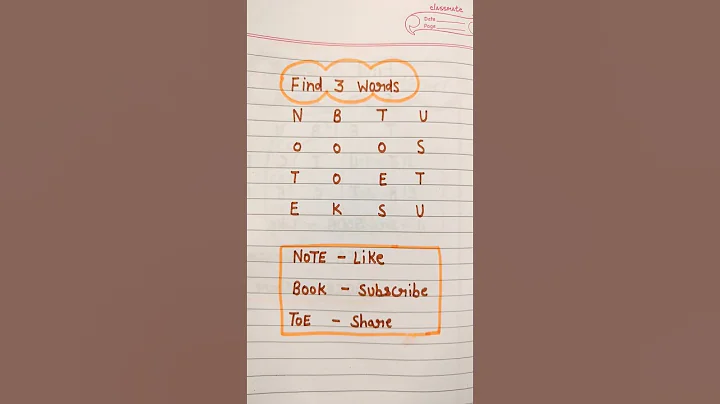 classmate
Date
Page
Find 3 Words
N B T U
O O O S
T O E T
E K S U
NOTE - Like
BOOK - Subscribe
TOE - Share